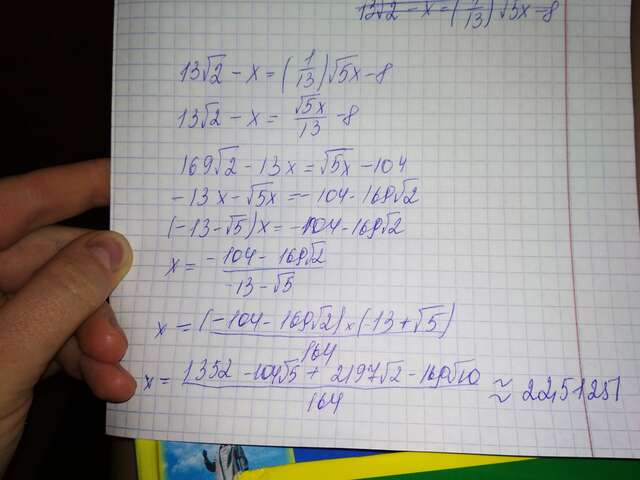 13√2 - x = (1/13)√5x - 8
13√2 - x = (1/13)√5x - 8
13√2 - x = √5x/13 - 8
169√2 - 13x = √5x - 104
-13x - √5x = -104 - 169√2
(-13 - √5)x = -104 - 169√2
x = (-104 - 169√2)/(-13 - √5)
x = ((-104 - 169√2) × (-13 + √5))/164
x = (1352 - 104√5 + 2197√2 - 169√10)/164 ≈ 22,51251